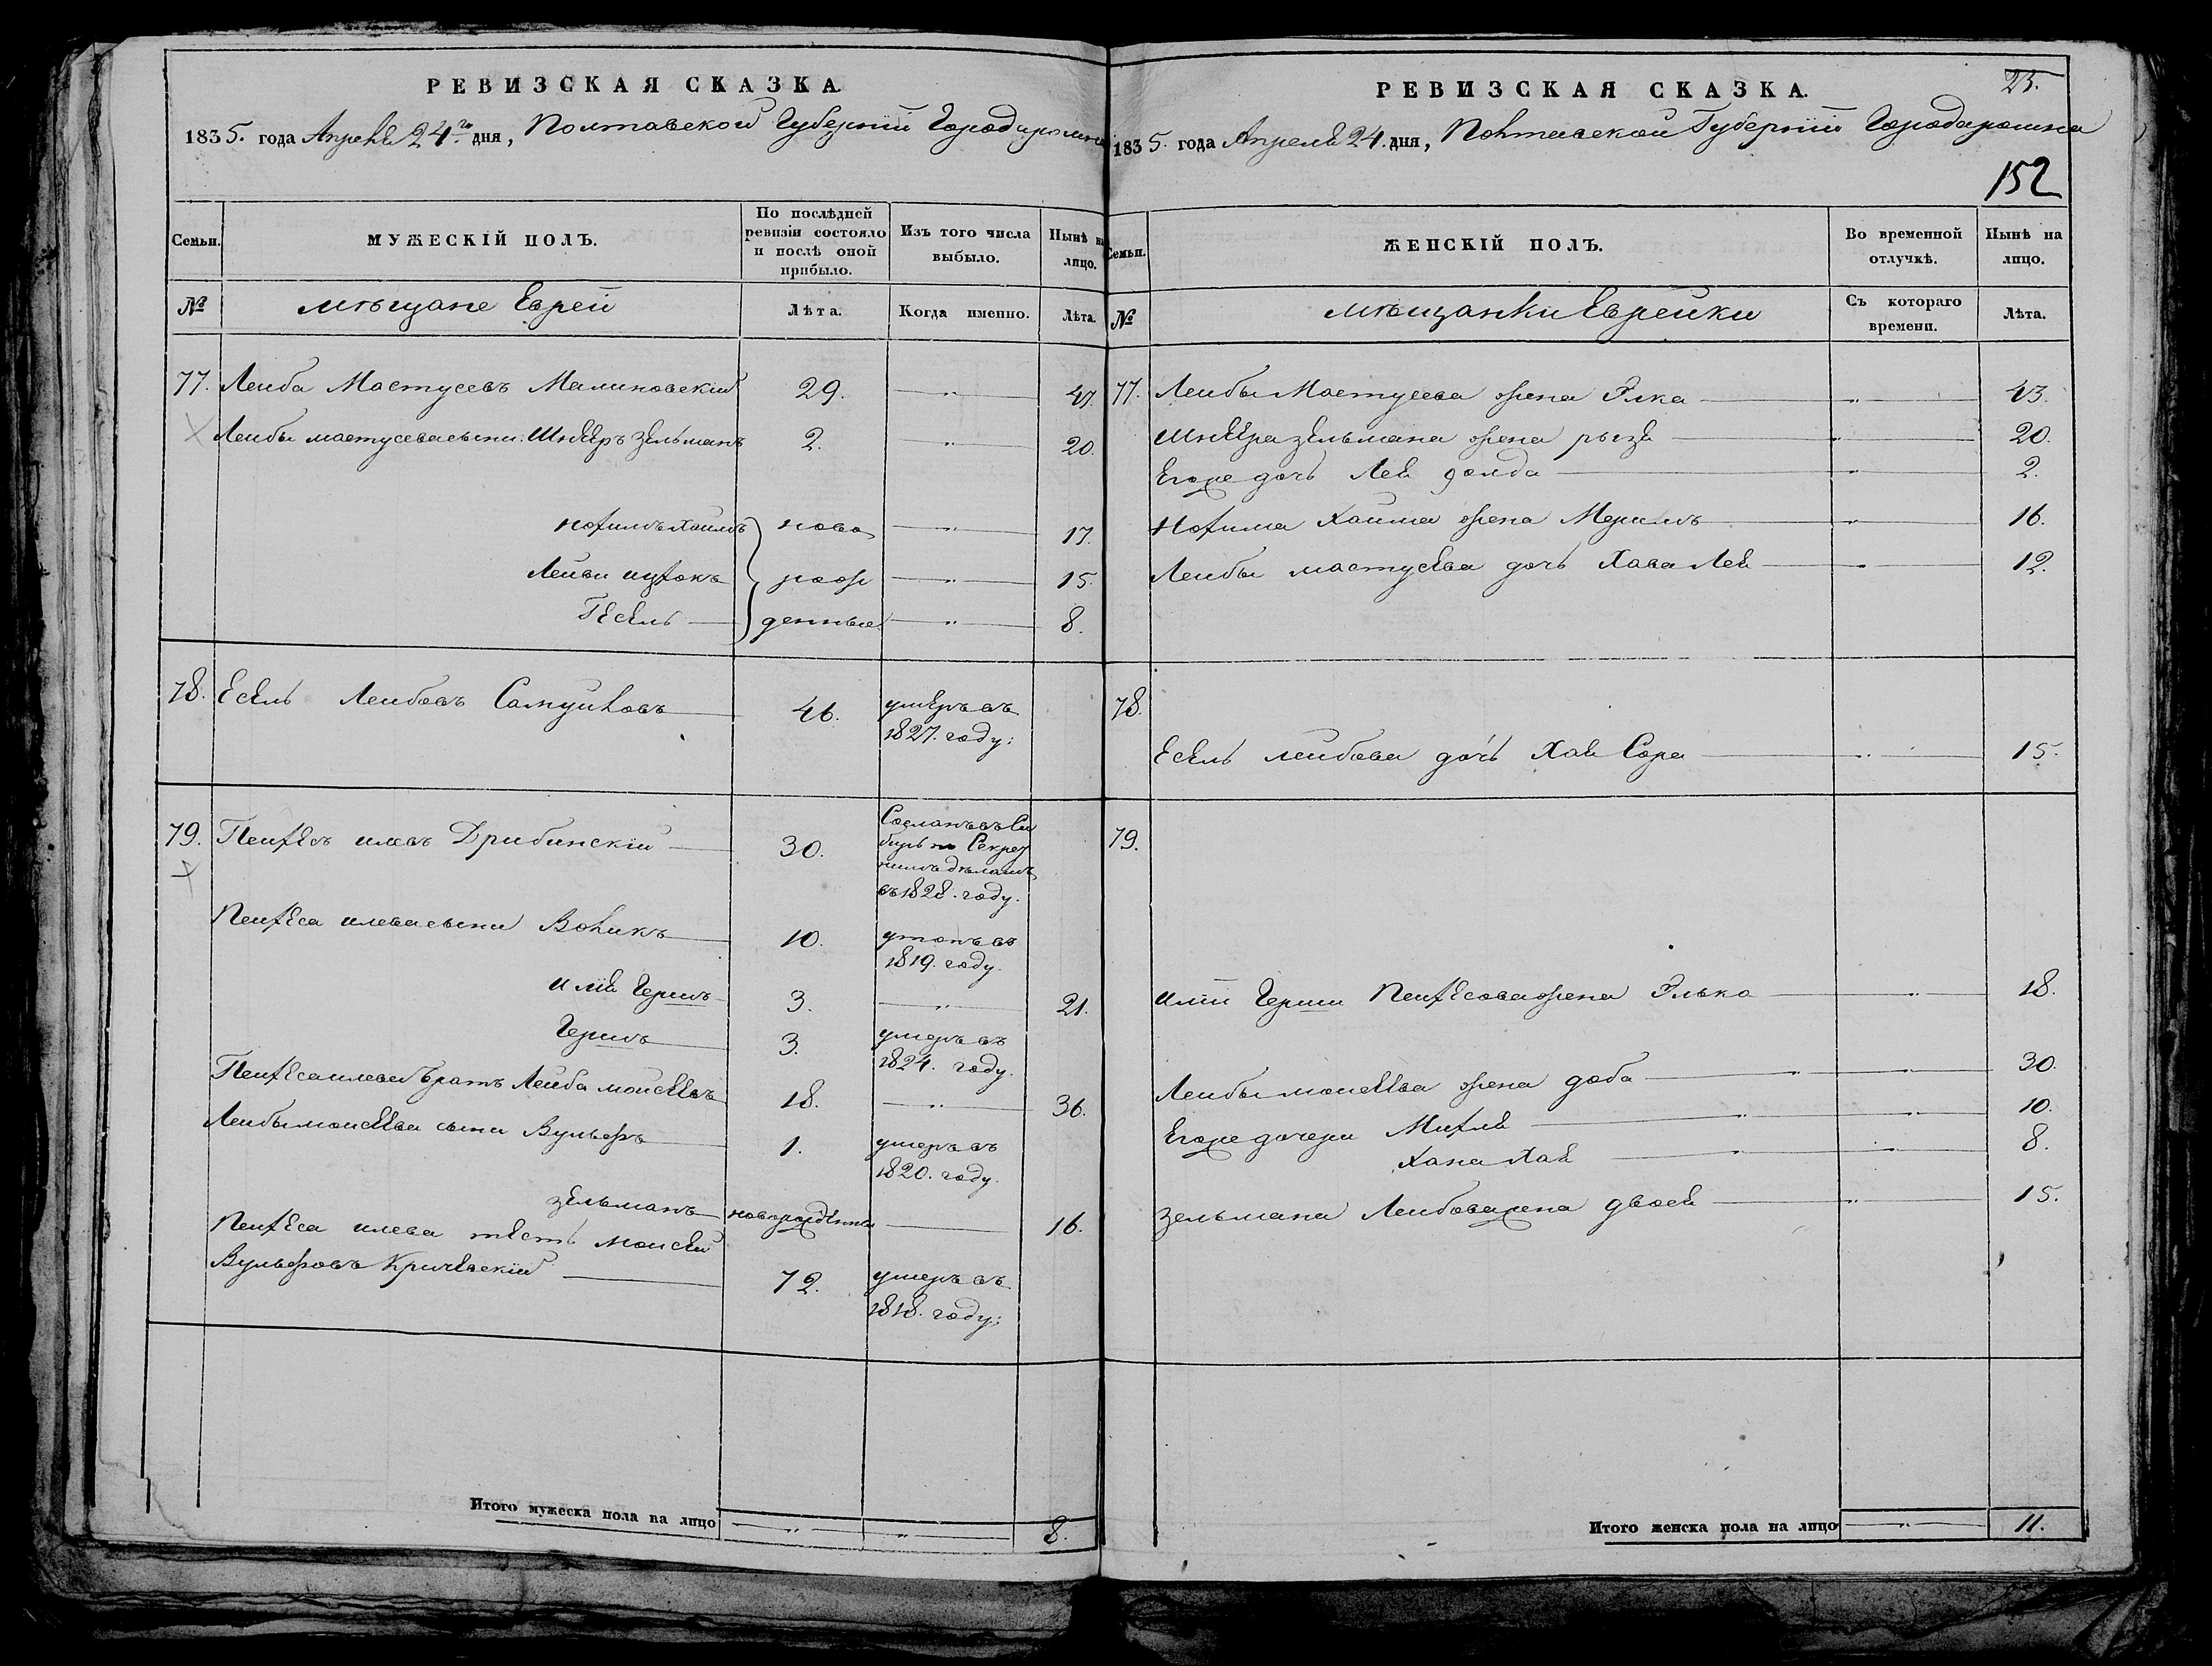 РЕВИЗСКАЯ СКАЗКА
1835. года Апреля 24го дня, Полтавской Губернии Города
Семьи.
МУЖЕСКІЙ ПОЛЪ.
По послѣдней ревизіи состояло и послѣ оной прибыло.
Изъ того числа выбыло.
Нынѣ на лицо.
№
мѣщане Евреи
Лѣта.
Когда именно.
Лѣта.
77. Лейба Мастусевъ Малиновскій 29. — " — 47.
Лейбы мастусева сыни: Шнееръ зельманъ 2. — " — 20.
Хаимъ ново — " — 17.
Лейви ицхокъ рож — " — 15.
Гесель — денные — " — 8.
78. Есель Лейбовъ Самуйловъ 46. умеръ въ
1827. году;
79. Пейхесъ илевъ Дрибинскій — 30. Сосланъ въ Си
биръ по Секрет
нимъ дѣламъ
въ 1828. году.
Пейхеса илева сыни Воликъ 10. утопъ въ
1819. году.
илія Гершъ 3. — " — 21.
Гершъ 3. умеръ въ
1824. году.
Пейхеса илева братъ Лейба мойсеевъ 18. — " — 36.
Лейбы мойсеева сыни Вульфъ 1. умеръ въ
1820. году.
зельманъ новорожденны — 16.
Пейхеса илева тесть мойсей
Вульфовъ Кричевскій — 72. умеръ въ
1818. году;
Итого мужеска пола на лицо — " — " — 8.
РЕВИЗСКАЯ СКАЗКА.
25.
1835. года Апреля 24. дня, Полтавской Губерніи Города
152
Семьи.
ЖЕНСКІЙ ПОЛЪ.
Во временной отлучкѣ.
Нынѣ на лицо.
№
мѣщанки Еврейки
Съ котораго времени.
Лѣта.
77. Лейбы Мастусева жена Элка — " — 43.
Шнеера зельмана жена рыся — " — 20.
Егоже дочь Лея — " — 2.
Хаима жена — " — 16.
Лейбы мастусева дочь Хава Лея — " — 12.
78.
Есель лейбова дочь Хая Сора — " — 15.
79.
иліи Герши Пейхесова жена Элько — " — 18.
Лейбы мойсеева жена доба — " — 30.
Егоже дочери Михля — " — 10.
Хана Хая — " — 8.
зельмана Лейбова жена двося — " — 15.
Итого женска пола на лицо — " — 11.